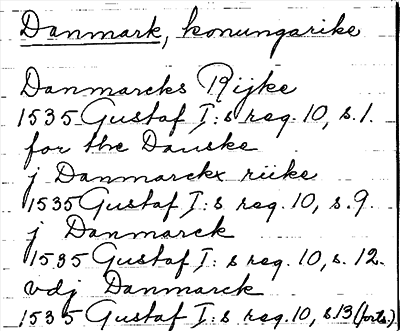 Danmark, konungarike
Danmarcks Rijke
1535 Gustaf I:s reg. 10, s. 1.
for the Danske
j Danmarckx riike
1535 Gustaf I:s reg. 10, s. 9.
j Danmarck
1535 Gustaf I:s reg. 10, s. 12.
vdj Danmarck
1535 Gustaf I:s reg. 10, s. 13 (forts.)